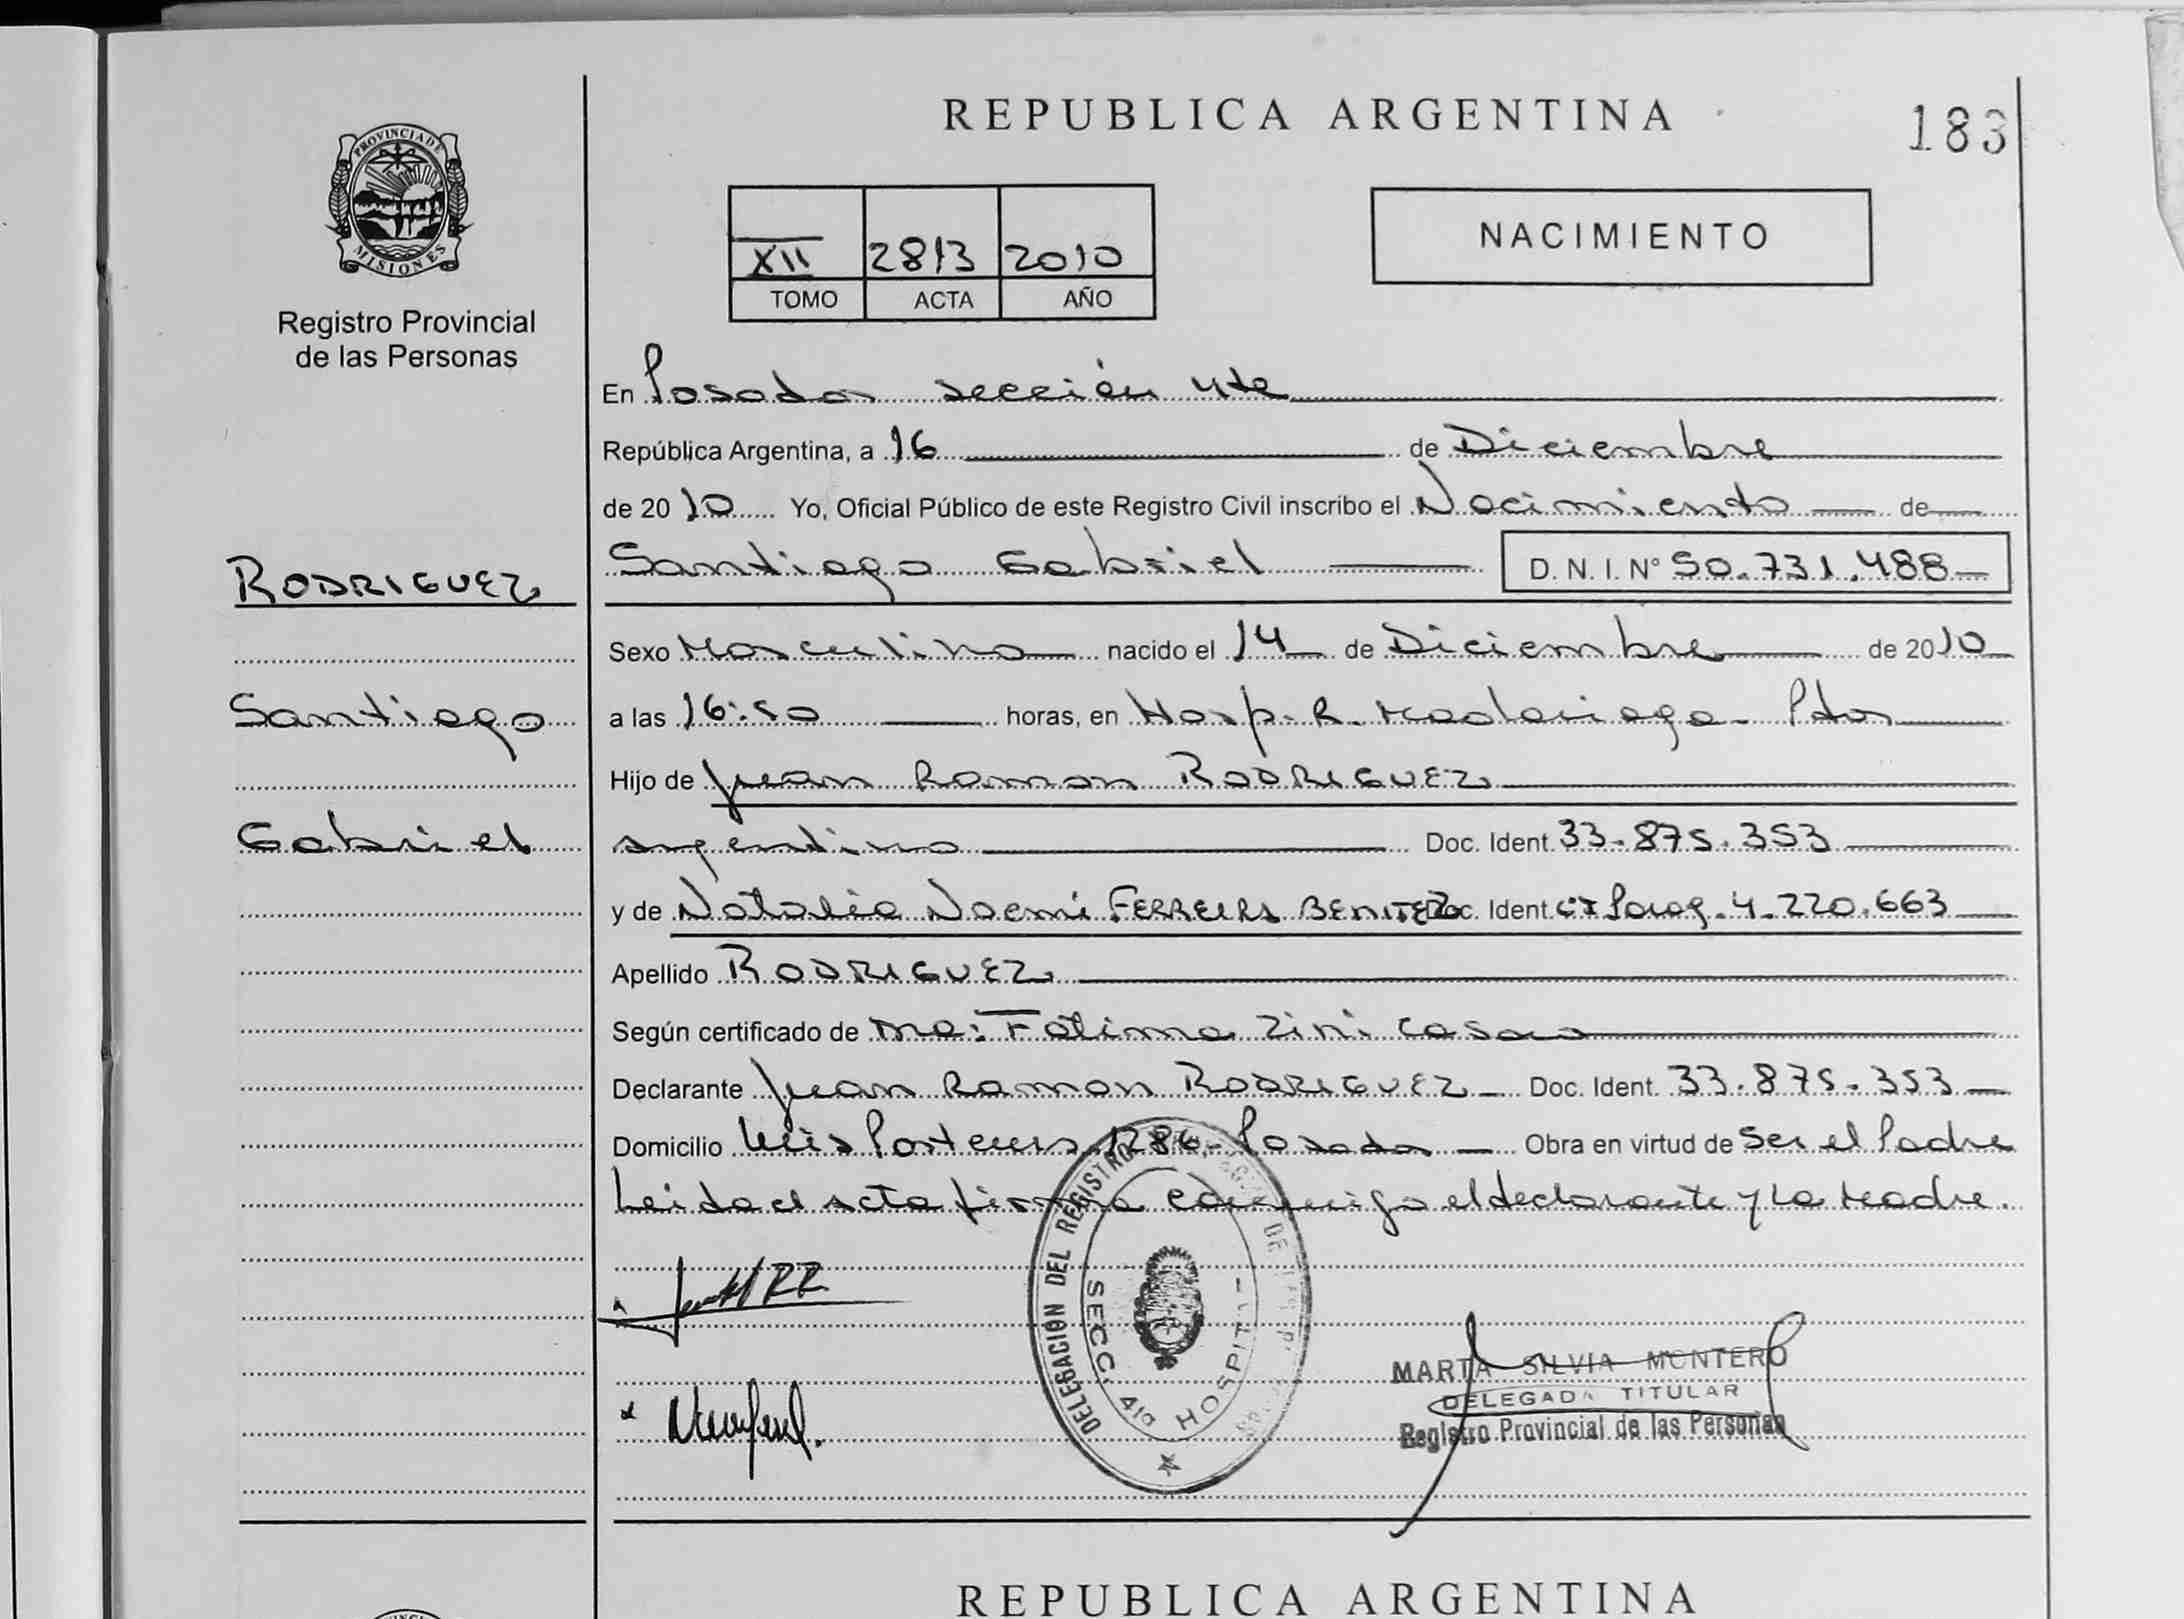 REPUBLICA ARGENTINA
183
PROVINCIA DE
MISIONES
Registro Provincial
de las Personas
XII 2813 2010
TOMO ACTA AÑO
NACIMIENTO
En Posadas sección 4ta
República Argentina, a 16 de Diciembre
de 2010 Yo, Oficial Público de este Registro Civil inscribo el Nacimiento de
RODRIGUEZ
Santiago Gabriel D. N. I. N° 50.731.488
Sexo Masculino nacido el 14 de Diciembre de 2010
Santiago
a las 16:50 horas, en Hosp. R. Madariaga - Pdas
Hijo de Juan Ramon RODRIGUEZ
Gabriel
argentino Doc. Ident. 33.875.353
y de Natalia Noemi FERREIRA BENITEZ Doc. Ident. CI Parag. 4.220.663
Apellido RODRIGUEZ
Según certificado de Ma: Fatima Zini
Declarante Juan Ramon RODRIGUEZ Doc. Ident. 33.875.353
Domicilio 1286, Posadas Obra en virtud de Ser el Padre
Leida el acta firma conmigo el declarante y La Madre.
DELEGACIÓN DEL REGISTRO
SECC. 4ta HOSPITAL
MARTA SILVIA MONTERO
DELEGADA TITULAR
Registro Provincial de las Personas
REPUBLICA ARGENTINA